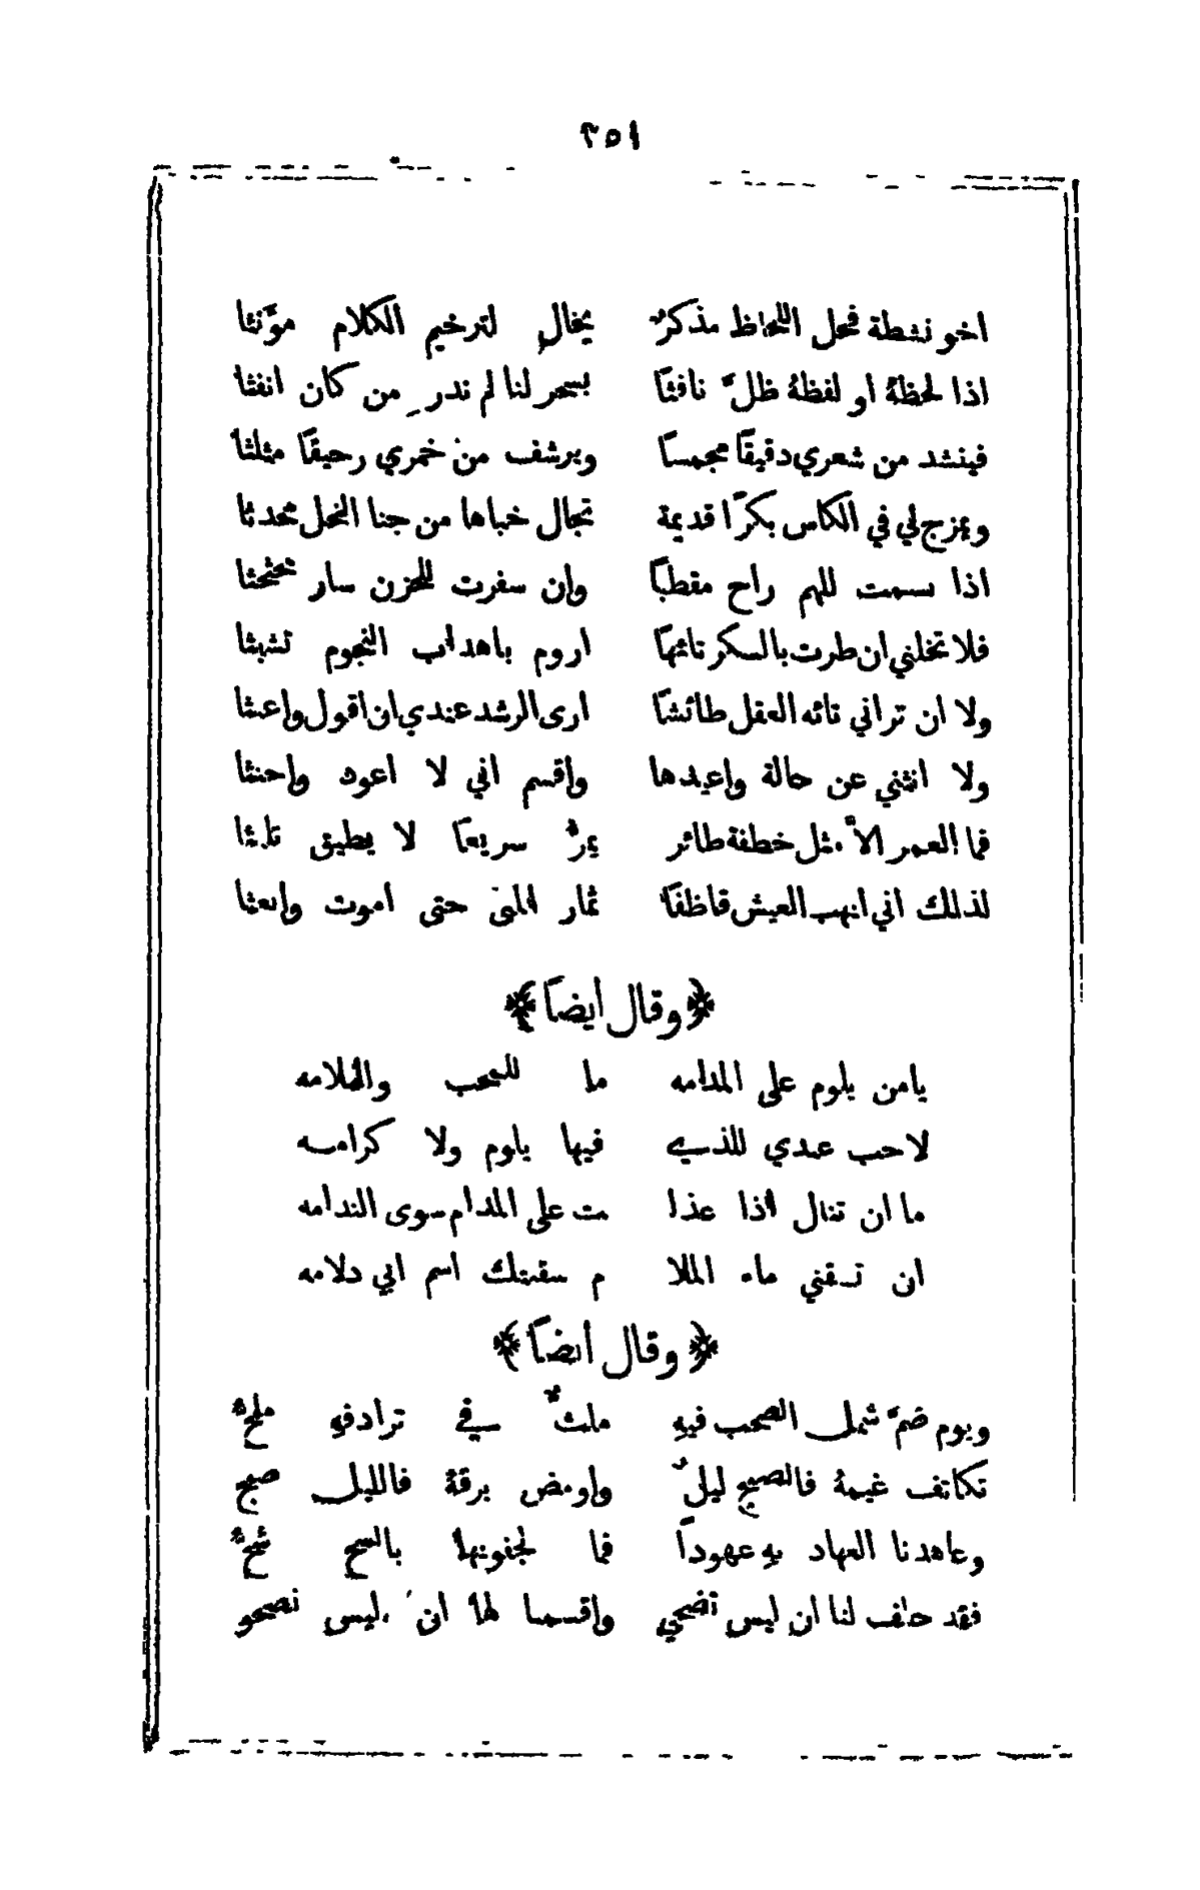 ٢٥١
اخو نشطة فحل اللحاظ مذكرٌ يخال لترخيم الكلام مؤنثا
اذا لحظهُ او لفظهُ ظلَّ نافثًا بسحر لنا لم ندر من كان انفثا
فينشد من شعري دقيقًا مجمسًا ويرشف من خمري رحيقًا مثلثا
ويمزج لي في الكاس بكرًا قديمة تجال خباها من جنا النحل محدثا
اذا بسمت للهم راح مقطبًا وان سفرت للحزن سار محثحثا
فلا تخلني ان طرت بالسكر تائهًا اروم باهداب النجوم تشبثا
ولا ان تراني تائه العقل طائشًا ارى الرشد عندي ان اقول واعبثا
ولا انثني عن حالة واعيدها واقسم اني لا اعود واحنثا
فما العمر الاَّ مثل خطفة طائر يمرُّ سريعًا لا يطيق تلبثا
لذلك اني انهب العيش قاطفًا ثمار المنى حتى اموت وابعثا
﴿ وقال أيضاً ﴾
يا من يلوم على المدامه ما للمحب والملامه
لا حب عبدي للذي فيها يلوم ولا كرامه
ما ان تنال اذا عذا مت على المدام سوى الندامه
ان تسقني ماء الملا م سقيتك اسم ابي دلامه
﴿ وقال أيضاً ﴾
ويوم ضمَّ شمل الصحب فيهِ ملثٌ في ترادفهِ ملحُّ
تكاتف غيمهُ فالصبح ليلٌ واومض برقهُ فالليل صبح
وعاهدنا العهاد بهِ عهوداً فما لجفونها بالسح شحُّ
فقد حلف لنا ان ليس تضحي واقسمنا لها ان ليس نصحو